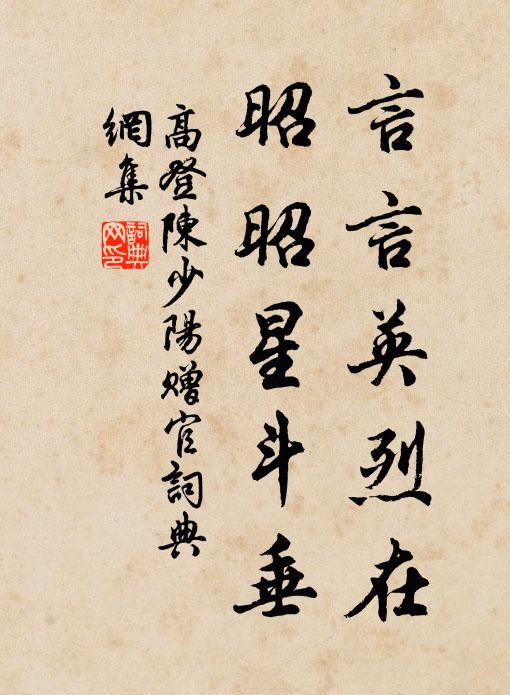 言言英烈在
昭昭星斗垂
高登陳少陽贈官詞典
網集
詞典
网印